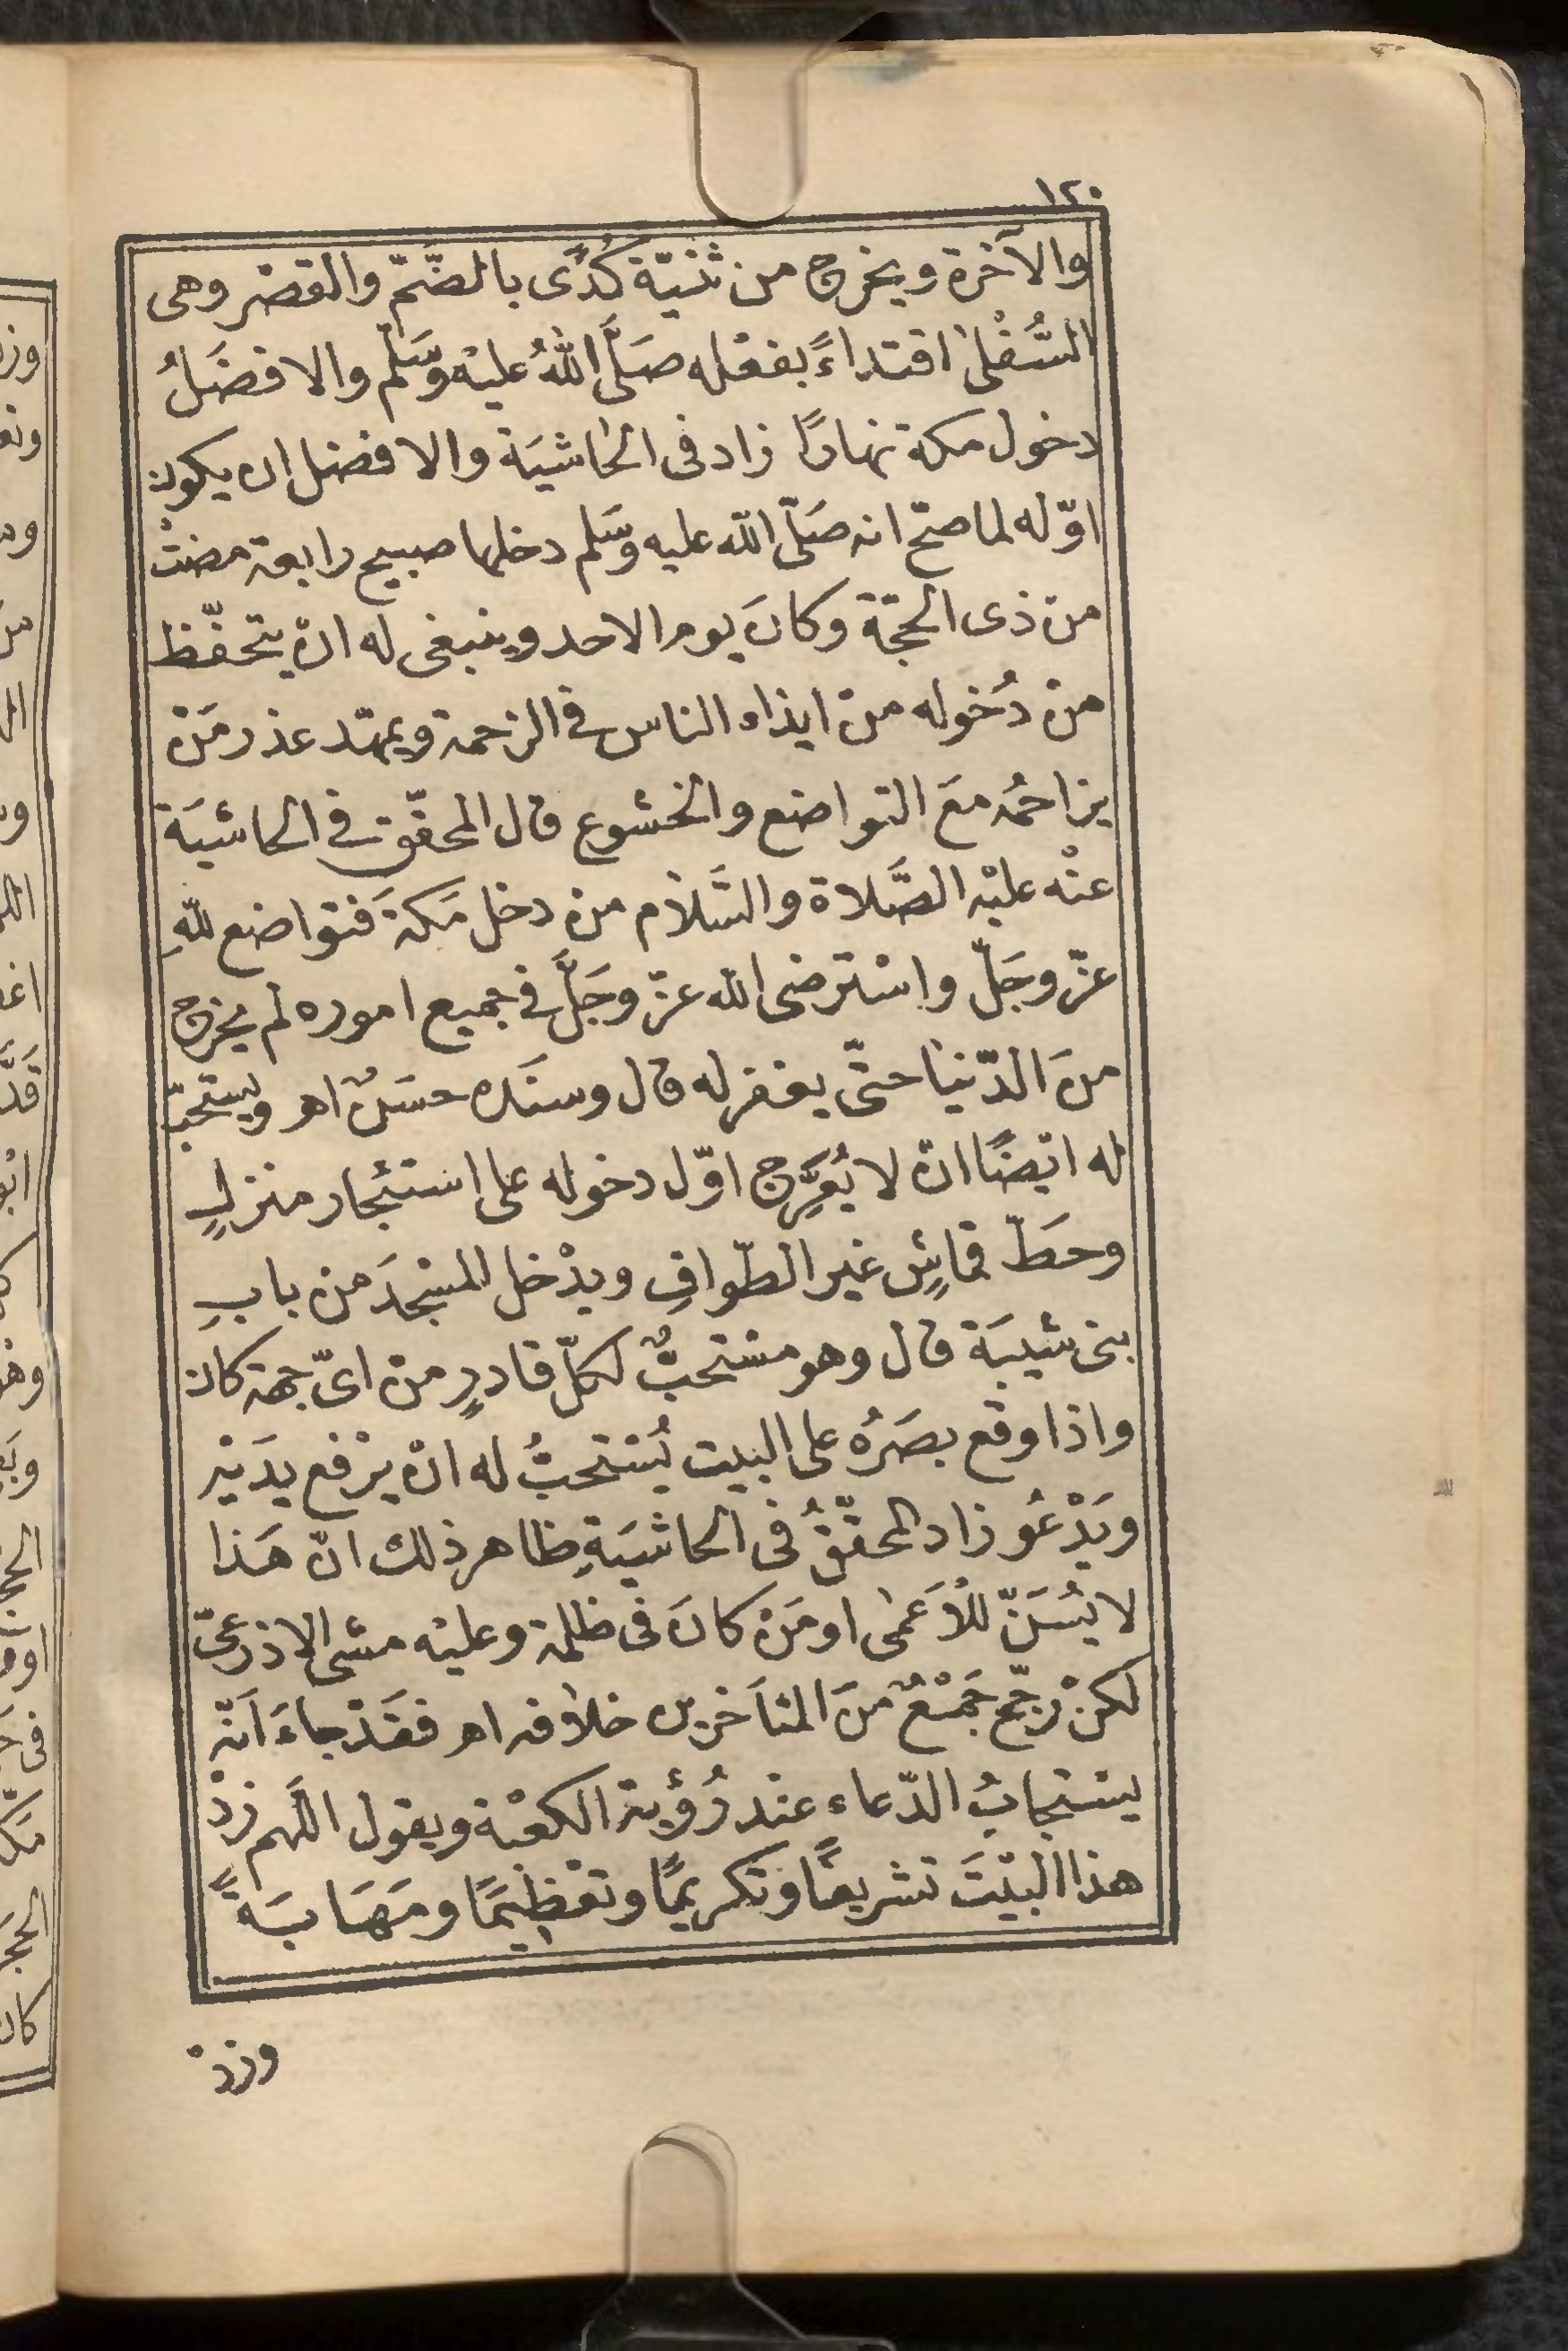 ١٢٠
والآخرة ويخرج من ثنيّة كُدًى بالضَّمّ والقصْر وهى
السُّفْلىٰ اقتداءً بفعْله صَلَّى اللهُ عليْه وَسَلّم والافضَلُ
دخول مكة نهارًا زاد فى الحَاشيَة والافضل ان يكون
اوّله لما صحّ انه صَلّى الله عليه وسَلم دخلها صبيح رابعة مضتْ
من ذى الحجّة وكانَ يوم الاحد وينبغى له انْ يتحفّظ
منْ دُخوله منْ ايذاء الناس فى الزحمة ويمهّد عذر مَنْ
يزاحمُه معَ التواضع والخشوع قال المحقّق فى الحاشيَة
عنْه عليْه الصَّلاة والسَّلاٰم منْ دخل مَكةَ فتواضع للهِ
عزّ وجَلّ واسْترضى الله عزّ وجَلَّ فى جميع اموره لم يخرج
منَ الدّنيا حتّى يغفر له قال وسنَده حسَنٌ اهـ ويستحبّ
له ايْضًا انْ لا يُعَرِّج اوّل دخوله على استئجار منزلٍ
وحَطّ قماشٍ غير الطّوافِ ويدْخل المسْجدَ من بابِ
بنى شيْبَة قال وهو مسْتحبٌّ لكلّ قادرٍ منْ اىّ جهة كان
واذا وقع بصَرُه على البيت يُسْتحبُّ له انْ يرْفع يدَيْه
ويَدْعُو زاد المحقّقُ فى الحاشيَةِ ظاهر ذلك انّ هَذا
لا يُسَنّ للْأعَمٰى او مَنْ كانَ فى ظلمة وعليْه مشى الاذرعىّ
لكنْ رجّح جَمْعٌ منَ المتأخرين خلاٰفه اهـ فقَدْ جاءَ أنّه
يسْتجابُ الدّعاء عنْد رُؤْية الكعْبة ويقول اللّهم زدْ
هذا البيْتَ تشريفًا وتكريمًا وتعْظيمًا ومَهَابَةً
وزدْ